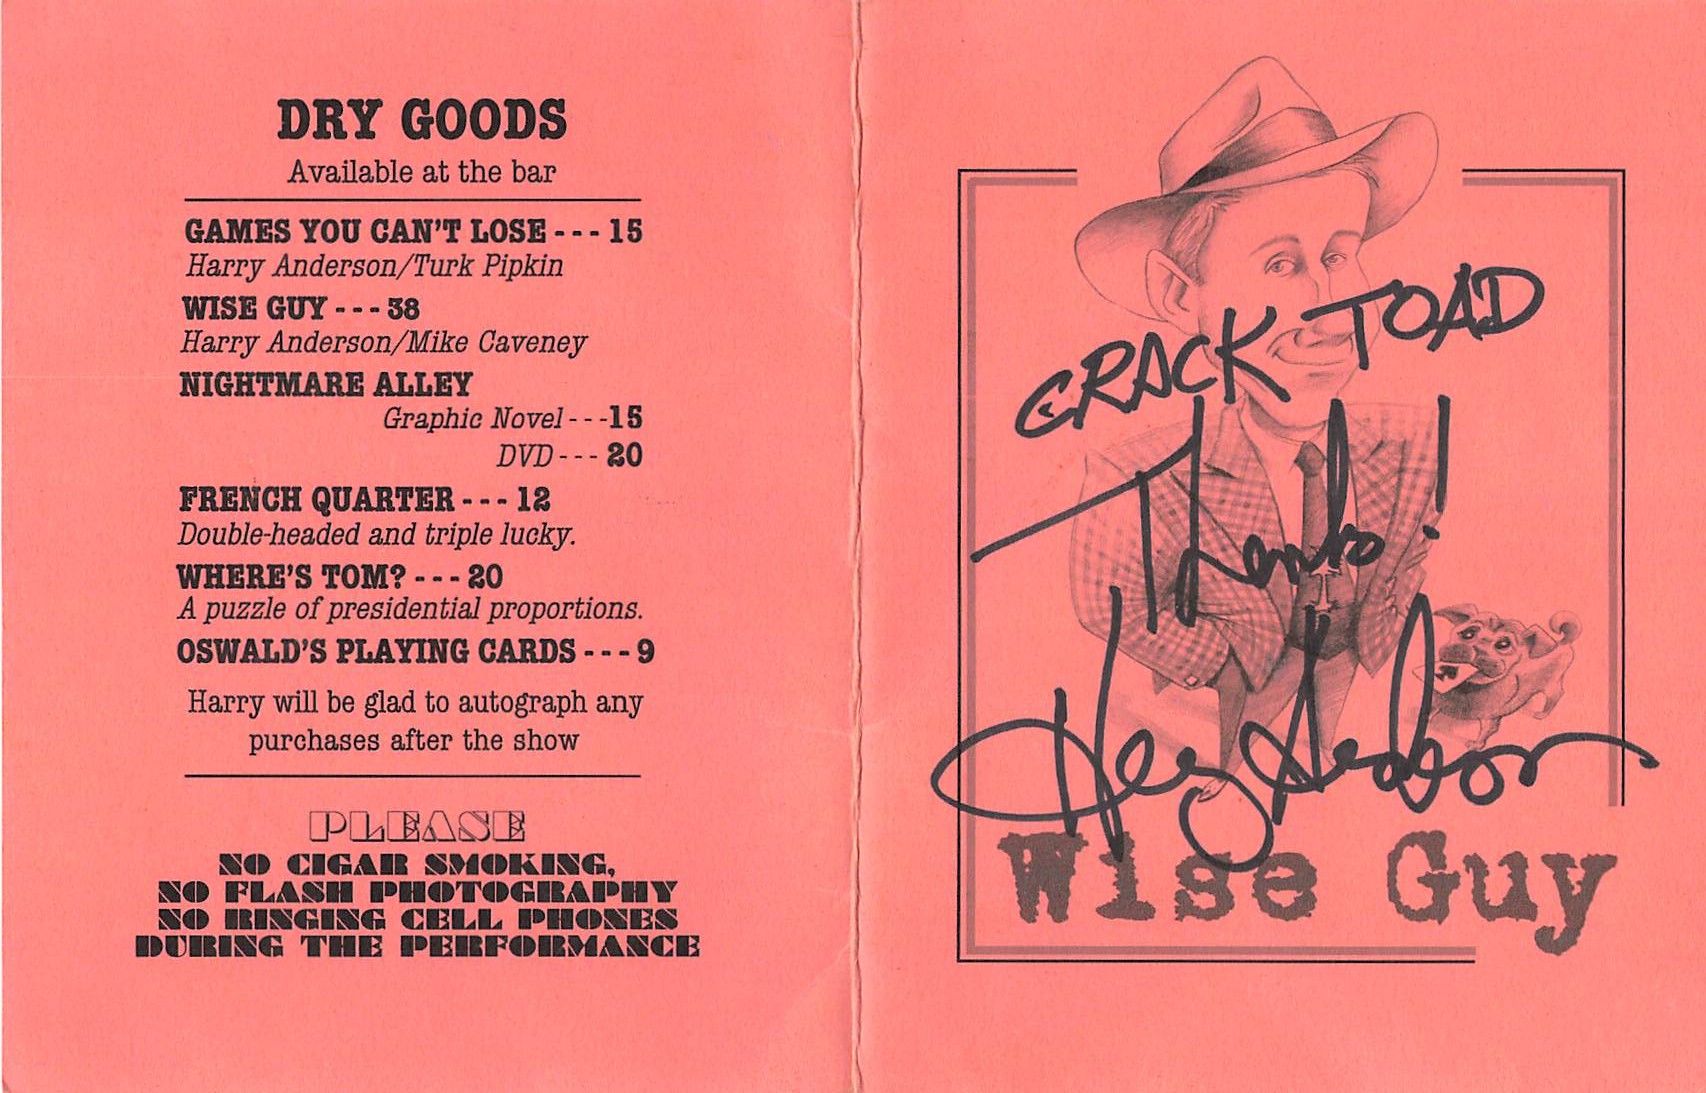 DRY GOODS
Available at the bar
GAMES YOU CAN'T LOSE - - - 15
Harry Anderson/Turk Pipkin
WISE GUY - - - 38
Harry Anderson/Mike Caveney
NIGHTMARE ALLEY
Graphic Novel - - -15
DVD - - - 20
FRENCH QUARTER - - - 12
Double-headed and triple lucky.
WHERE'S TOM? - - - 20
A puzzle of presidential proportions.
OSWALD'S PLAYING CARDS - - - 9
Harry will be glad to autograph any
purchases after the show
PLEASE
NO CIGAR SMOKING,
NO FLASH PHOTOGRAPHY
NO RINGING CELL PHONES
DURING THE PERFORMANCE
CRACK TOAD
Thanks!
Harry Anderson
Wise Guy